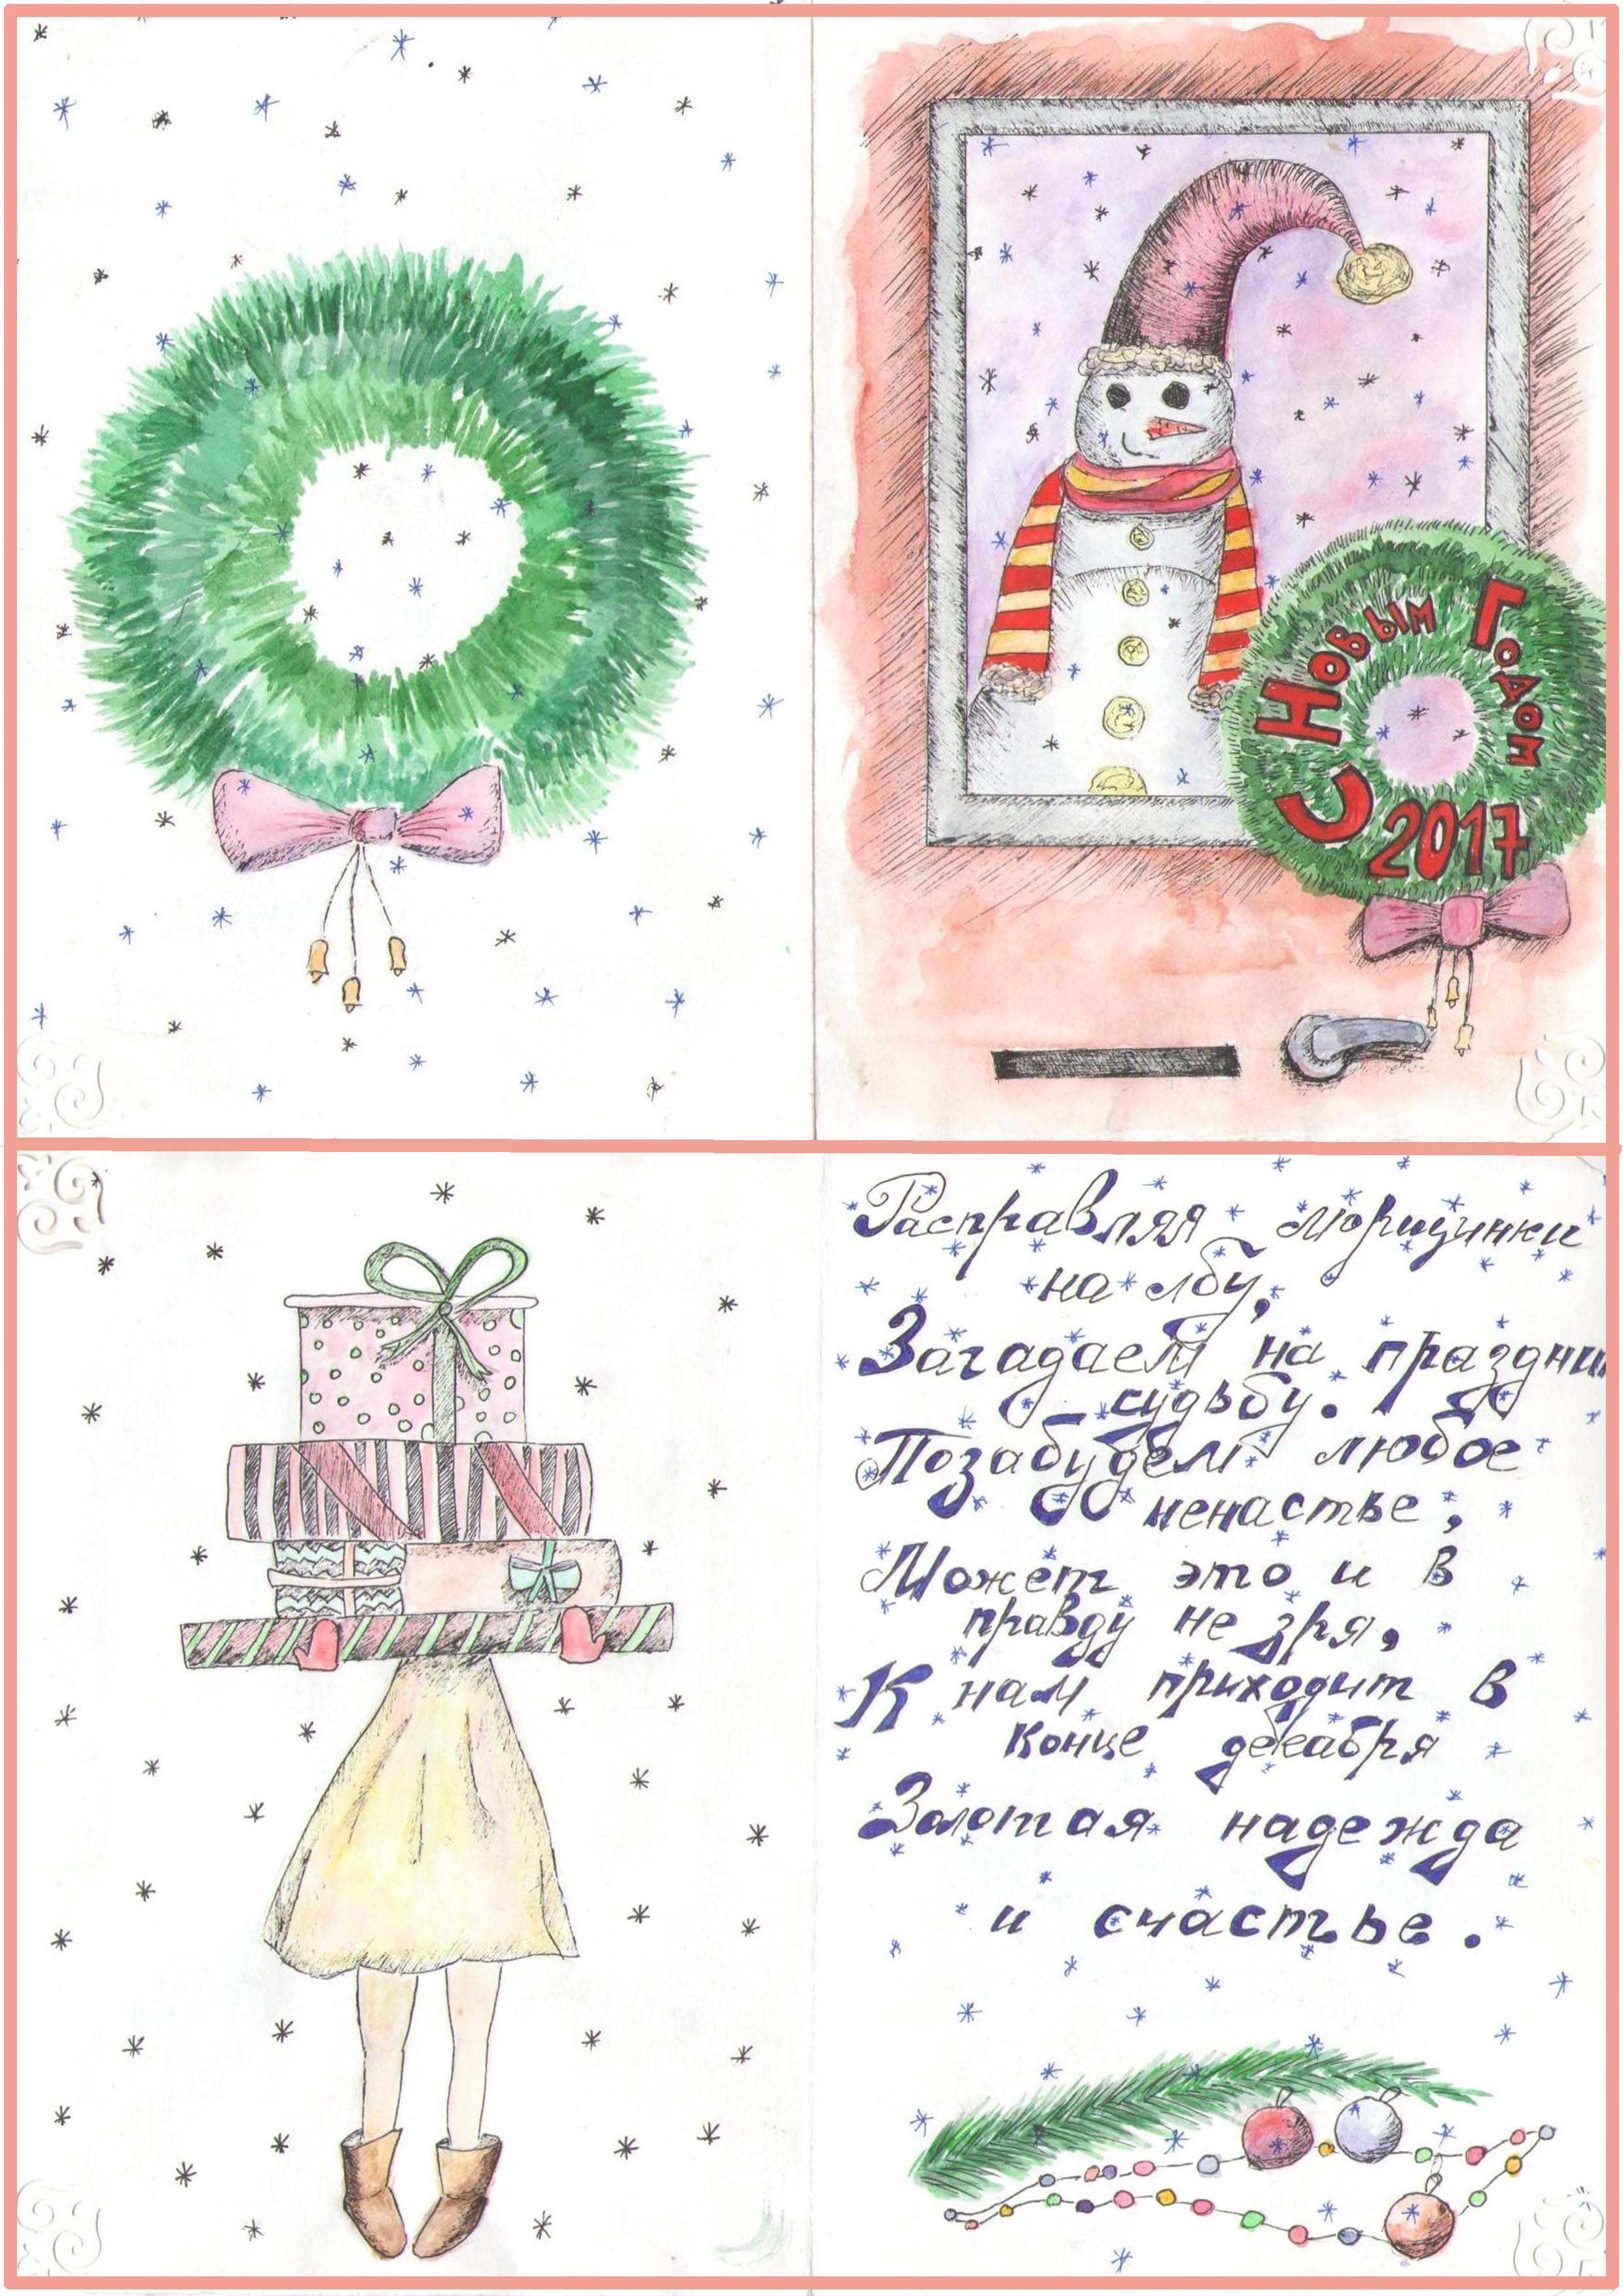 С Новым Годом
2017
Расправляя морщинки
на лбу,
Загадаем на праздни
судьбу.
Позабудем любое
ненастье;
Может это и в
правду не зря,
К нам приходит в
конце декабря
Золотая надежда
и счастье.